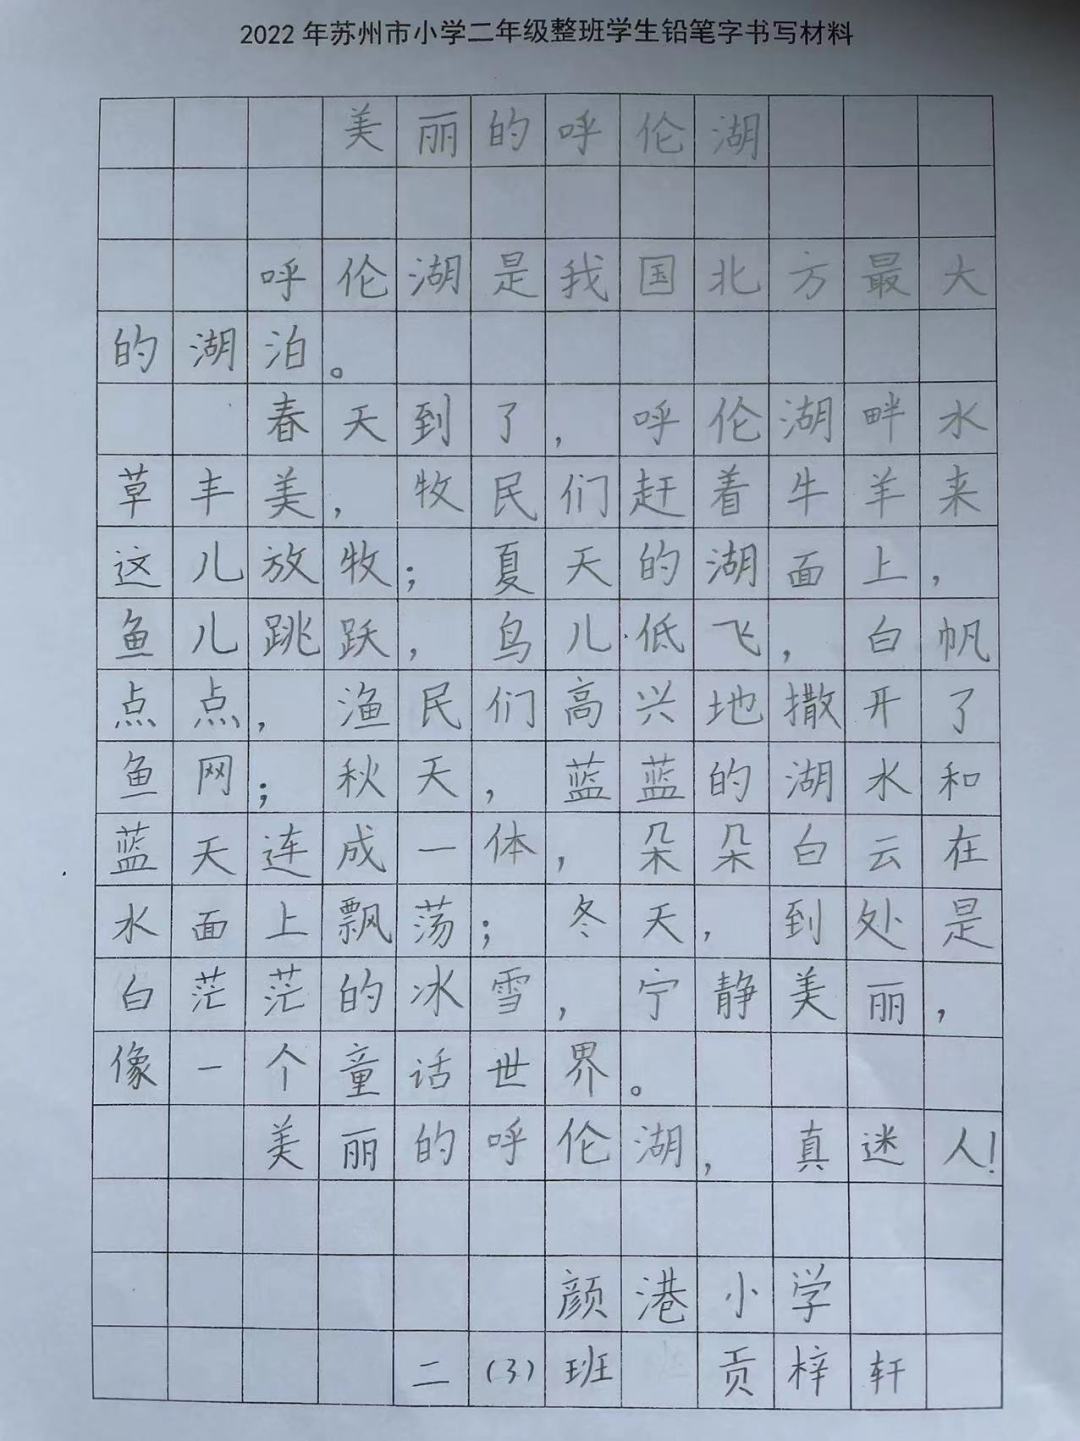 2022年苏州市小学二年级整班学生铅笔字书写材料
美丽的呼伦湖
呼伦湖是我国北方最大
的湖泊。
春天到了，呼伦湖畔水
草丰美，牧民们赶着牛羊来
这儿放牧；夏天的湖面上，
鱼儿跳跃，鸟儿低飞，白帆
点点，渔民们高兴地撒开了
鱼网；秋天，蓝蓝的湖水和
蓝天连成一体，朵朵白云在
水面上飘荡；冬天，到处是
白茫茫的冰雪，宁静美丽，
像一个童话世界。
美丽的呼伦湖，真迷人！
颜港小学
二（3）班 贡梓轩